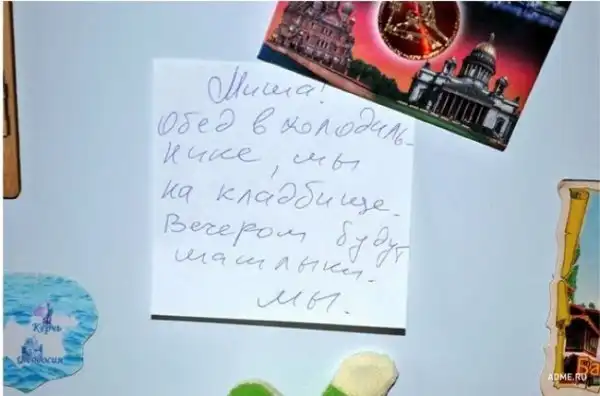 Миша!
Обед в холодиль-
нике, мы
на кладбище.
Вечером будут
шашлыки.
мы.
Керчь
Феодосия
Ba
ADME.RU